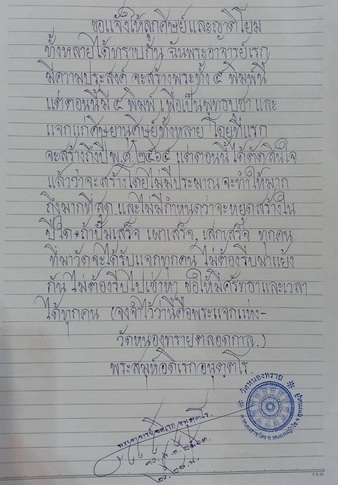 ขอแจ้งให้ลูกศิษย์และญาติโยม
ทั้งหลายได้ทราบกัน ฉันพระอาจารย์เรก
มีความประสงค์ จะสร้างพระทั้ง ๕ พิมพ์นี้
แต่ตอนนี้มี ๔ พิมพ์ เพื่อเป็นพุทธบูชา และ
แจกแก่ศิษยานุศิษย์ทั้งหลาย โดยที่แรก
จะสร้างถึงปี พ.ศ. ๒๕๖๕ แต่ตอนนี้ได้ตัดสินใจ
แล้วว่าจะสร้างโดยไม่มีประมาณ จะทำให้มาก
ถึงมากที่สุด และไม่มีกำหนดว่าจะหยุดสร้างใน
ปีใด ถ้าปั๊มเสร็จ เผาเสร็จ เสกเสร็จ ทุกคน
ที่มาวัดจะได้รับแจกทุกคน ไม่ต้องรีบมาแย้ง
กัน ไม่ต้องรีบไปเช่าหา ขอให้มีศรัทธาและเวลา
ได้ทุกคน (จงจำไว้ว่านี่คือพระแจกแห่ง-
วัดหนองทรายตลอดกาล.)
พระสมุห์อดิเรกอนุตฺตโร.
วัดหนองทราย